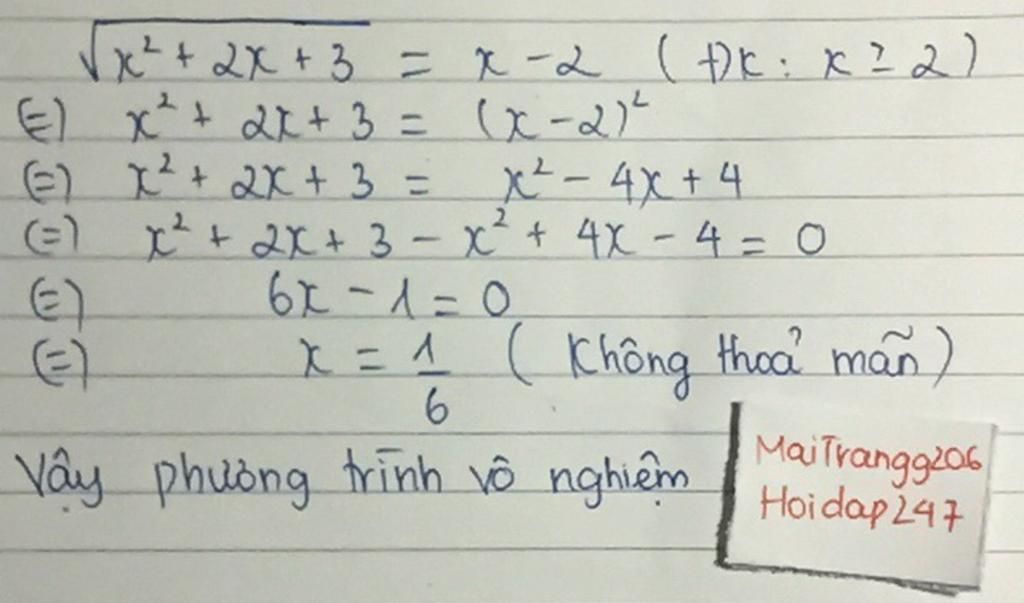 √(x² + 2x + 3) = x - 2 (ĐK: x ≥ 2)
(=) x² + 2x + 3 = (x - 2)²
(=) x² + 2x + 3 = x² - 4x + 4
(=) x² + 2x + 3 - x² + 4x - 4 = 0
(=) 6x - 1 = 0
(=) x = 1/6 (Không thoả mãn)
Vậy phương trình vô nghiệm
MaiTrangg206
Hoidap247